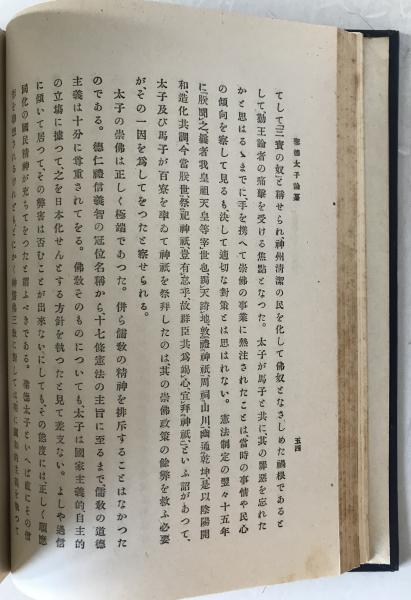 聖德太子論纂
五四
てして「三寶の奴」と稱せられ神州清潔の民を化して佛奴となさしめた禍根であると
して、勤王論者の痛撃を受ける焦點となつた。太子が馬子と共に其の罪惡を忘れた
かと思はるゝまでに、手を携へて崇佛の事業に熱注されたことは、當時の事情や民心
の傾向を察して見るも、決して適切な對策とは思はれない。憲法制定の翌々十五年
に、「朕聞之、曩者我皇祖天皇等宰世也、跼天蹐地、敦禮神祇、周祠山川、幽通乾坤、是以陰陽開
和、造化共調、今當朕世、祭祀神祇、豈有怠乎、故群臣共爲竭心、宜拜神祇」といふ詔があつて、
太子及び馬子が百寮を率ゐて神祇を祭拜したのは、其の崇佛政策の餘弊を救ふ必要
が、その一因を爲してをつたと察せられる。
太子の崇佛は正しく極端であつた。併ら儒敎の精神を排斥することはなかつた
のである。德仁禮信義智の冠位名稱から、十七條憲法の主旨に至るまで、儒敎の道德
主義は十分に尊重されてをる。佛敎そのものについても、太子は國家主義的自主的
の立場に據つて、之を日本化せんとする方針を執つたと見て差支ない。よしや過信
に傾いて居つて、その弊害は否むことが出來ないにしても、その態度には正しく順應
同化の國民精神が充ちてをつたと謂ふべきである。聖德太子といへば直にその信